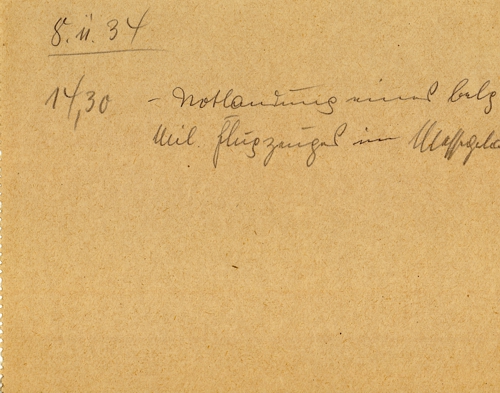 8. II. 34
14,30 - Notlandung eines belg
Mil. Flugzeuges im